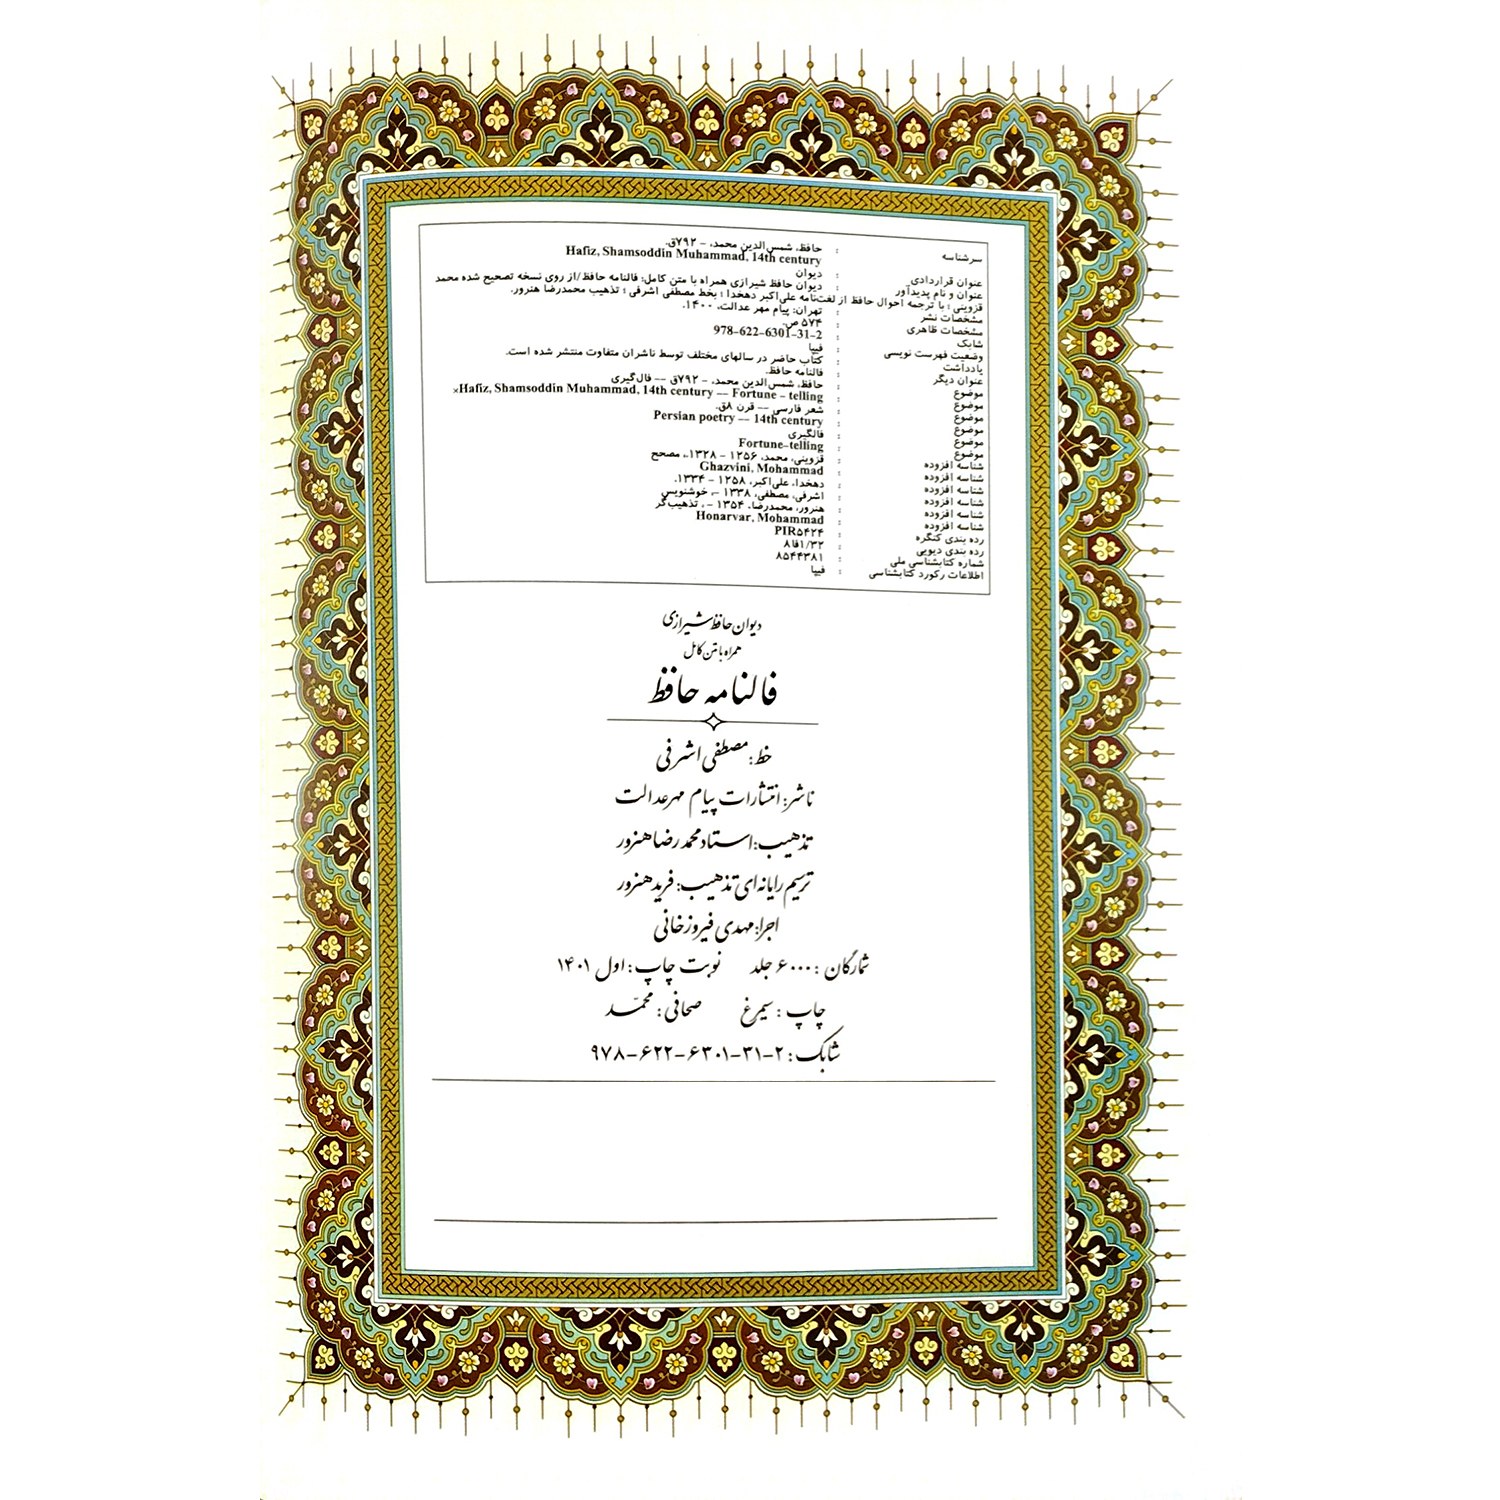 سرشناسه : حافظ، شمس‌الدین محمد، - ۷۹۲ق.
Hafiz, Shamsoddin Muhammad, 14th century
عنوان قراردادی : دیوان
عنوان و نام پدیدآور : دیوان حافظ شیرازی همراه با متن کامل: فالنامه حافظ/از روی نسخه تصحیح شده محمد
قزوینی ؛ با ترجمه احوال حافظ از لغت‌نامه علی‌اکبر دهخدا ؛ بخط مصطفی اشرفی ؛ تذهیب محمدرضا هنرور.
مشخصات نشر : تهران: پیام مهر عدالت، ۱۴۰۰.
مشخصات ظاهری : ۵۷۴ ص.
شابک : 978-622-6301-31-2
وضعیت فهرست نویسی : فیپا
یادداشت : کتاب حاضر در سالهای مختلف توسط ناشران متفاوت منتشر شده است.
عنوان دیگر : فالنامه حافظ.
موضوع : حافظ، شمس‌الدین محمد، - ۷۹۲ق -- فال‌گیری
موضوع : Hafiz, Shamsoddin Muhammad, 14th century -- Fortune - telling×
موضوع : شعر فارسی -- قرن ۸ق.
موضوع : Persian poetry -- 14th century
موضوع : فالگیری
موضوع : Fortune-telling
شناسه افزوده : قزوینی، محمد، ۱۲۵۶ - ۱۳۲۸.، مصحح
شناسه افزوده : Ghazvini, Mohammad
شناسه افزوده : دهخدا، علی‌اکبر، ۱۲۵۸ - ۱۳۳۴.
شناسه افزوده : اشرفی، مصطفی، ۱۳۳۸ -، خوشنویس
شناسه افزوده : هنرور، محمدرضا، ۱۳۵۴ - ، تذهیب‌گر
شناسه افزوده : Honarvar, Mohammad
رده بندی کنگره : PIR۵۴۲۴
رده بندی دیویی : ۸فا۱/۳۲
شماره کتابشناسی ملی : ۸۵۴۴۳۸۱
اطلاعات رکورد کتابشناسی : فیپا
دیوان حافظ شیرازی
همراه با متن کامل
فالنامه حافظ
خط: مصطفی اشرفی
ناشر: انتشارات پیام مهر عدالت
تذهیب: استاد محمدرضا هنرور
ترسیم رایانه‌ای تذهیب: فرید هنرور
اجرا: مهدی فیروزخانی
شمارگان : ۶۰۰۰ جلد نوبت چاپ : اول ۱۴۰۱
چاپ : سیمرغ صحافی : محمّد
شابک : ۲-۳۱-۶۳۰۱-۶۲۲-۹۷۸